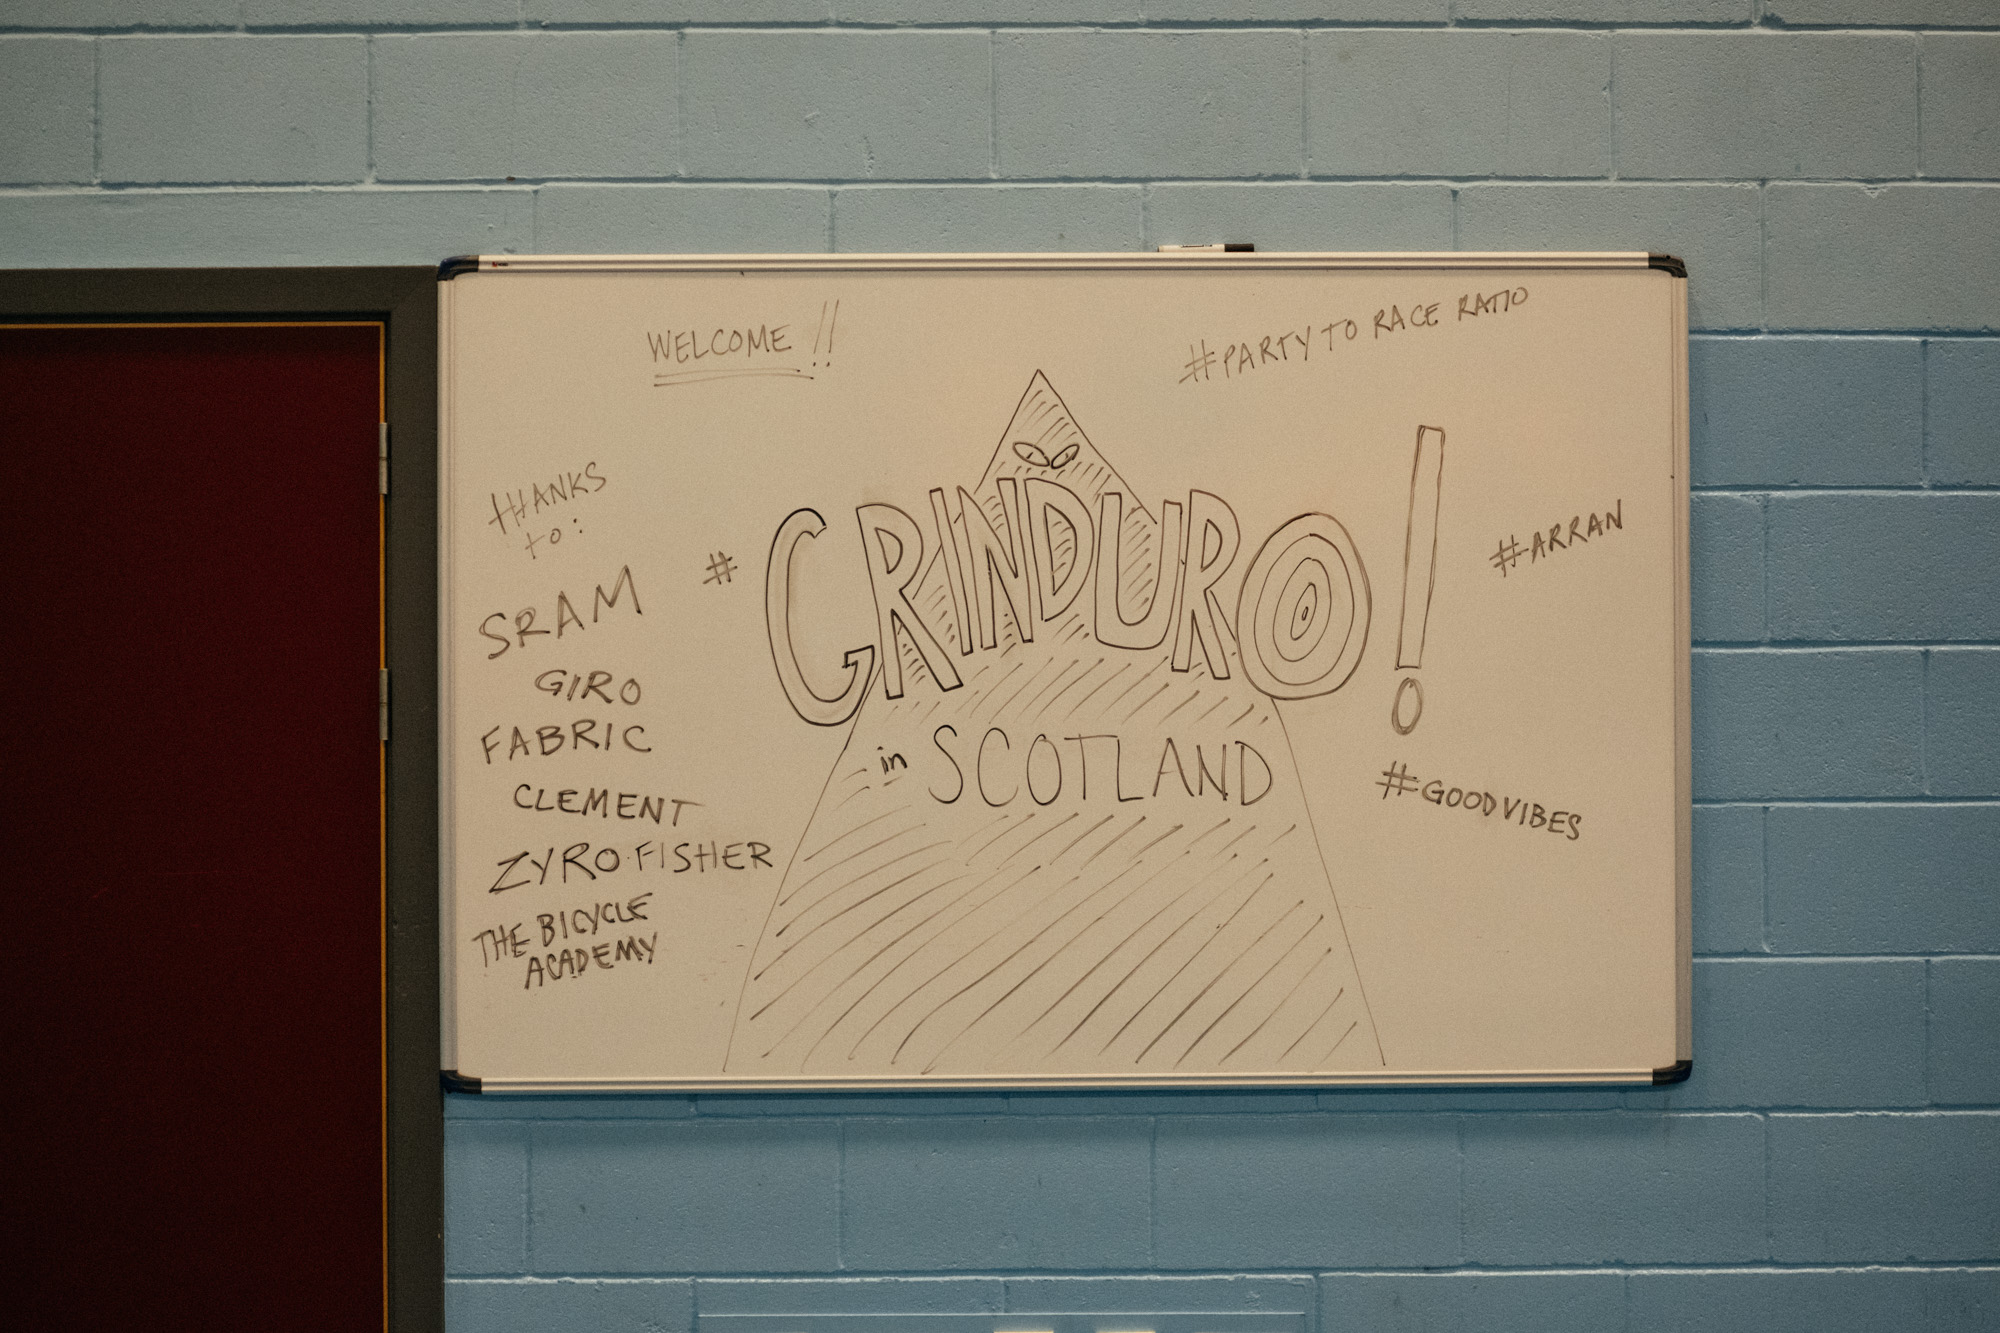 WELCOME!!
#PARTY TO RACE RATIO
THANKS
to:
SRAM
GIRO
FABRIC
CLEMENT
ZYRO·FISHER
THE BICYCLE
ACADEMY
#GRINDURO!
in SCOTLAND
#ARRAN
#GOODVIBES